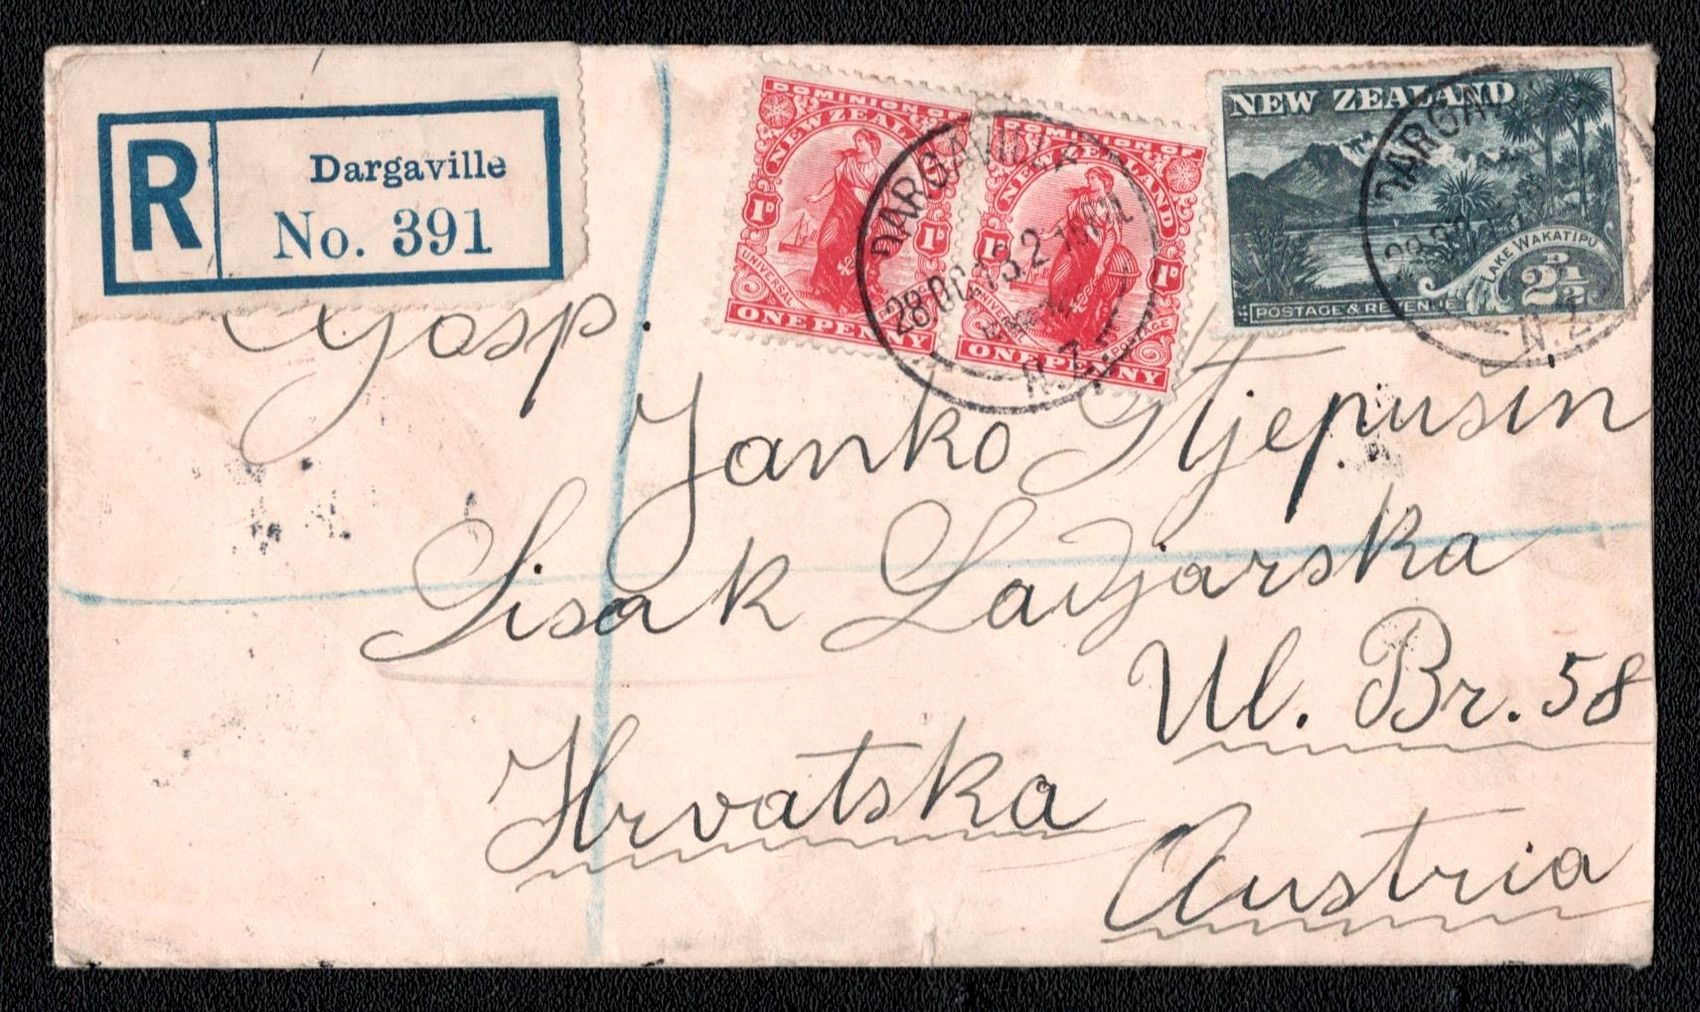 R
Dargaville
No. 391
DOMINION OF
NEW ZEALAND
1D 1D
UNIVERSAL
ONE PENNY
DOMINION OF
NEW ZEALAND
1D 1D
UNIVERSAL POSTAGE
ONE PENNY
DARGAVILLE
28 OC 13. 2
N.Z.
NEW ZEALAND
LAKE WAKATIPU
2½D
POSTAGE & REVENUE
N.Z.
Gosp.
Janko Stjepušin
Sisak Ladjarska
Ul. Br. 58
Hrvatska
Austria